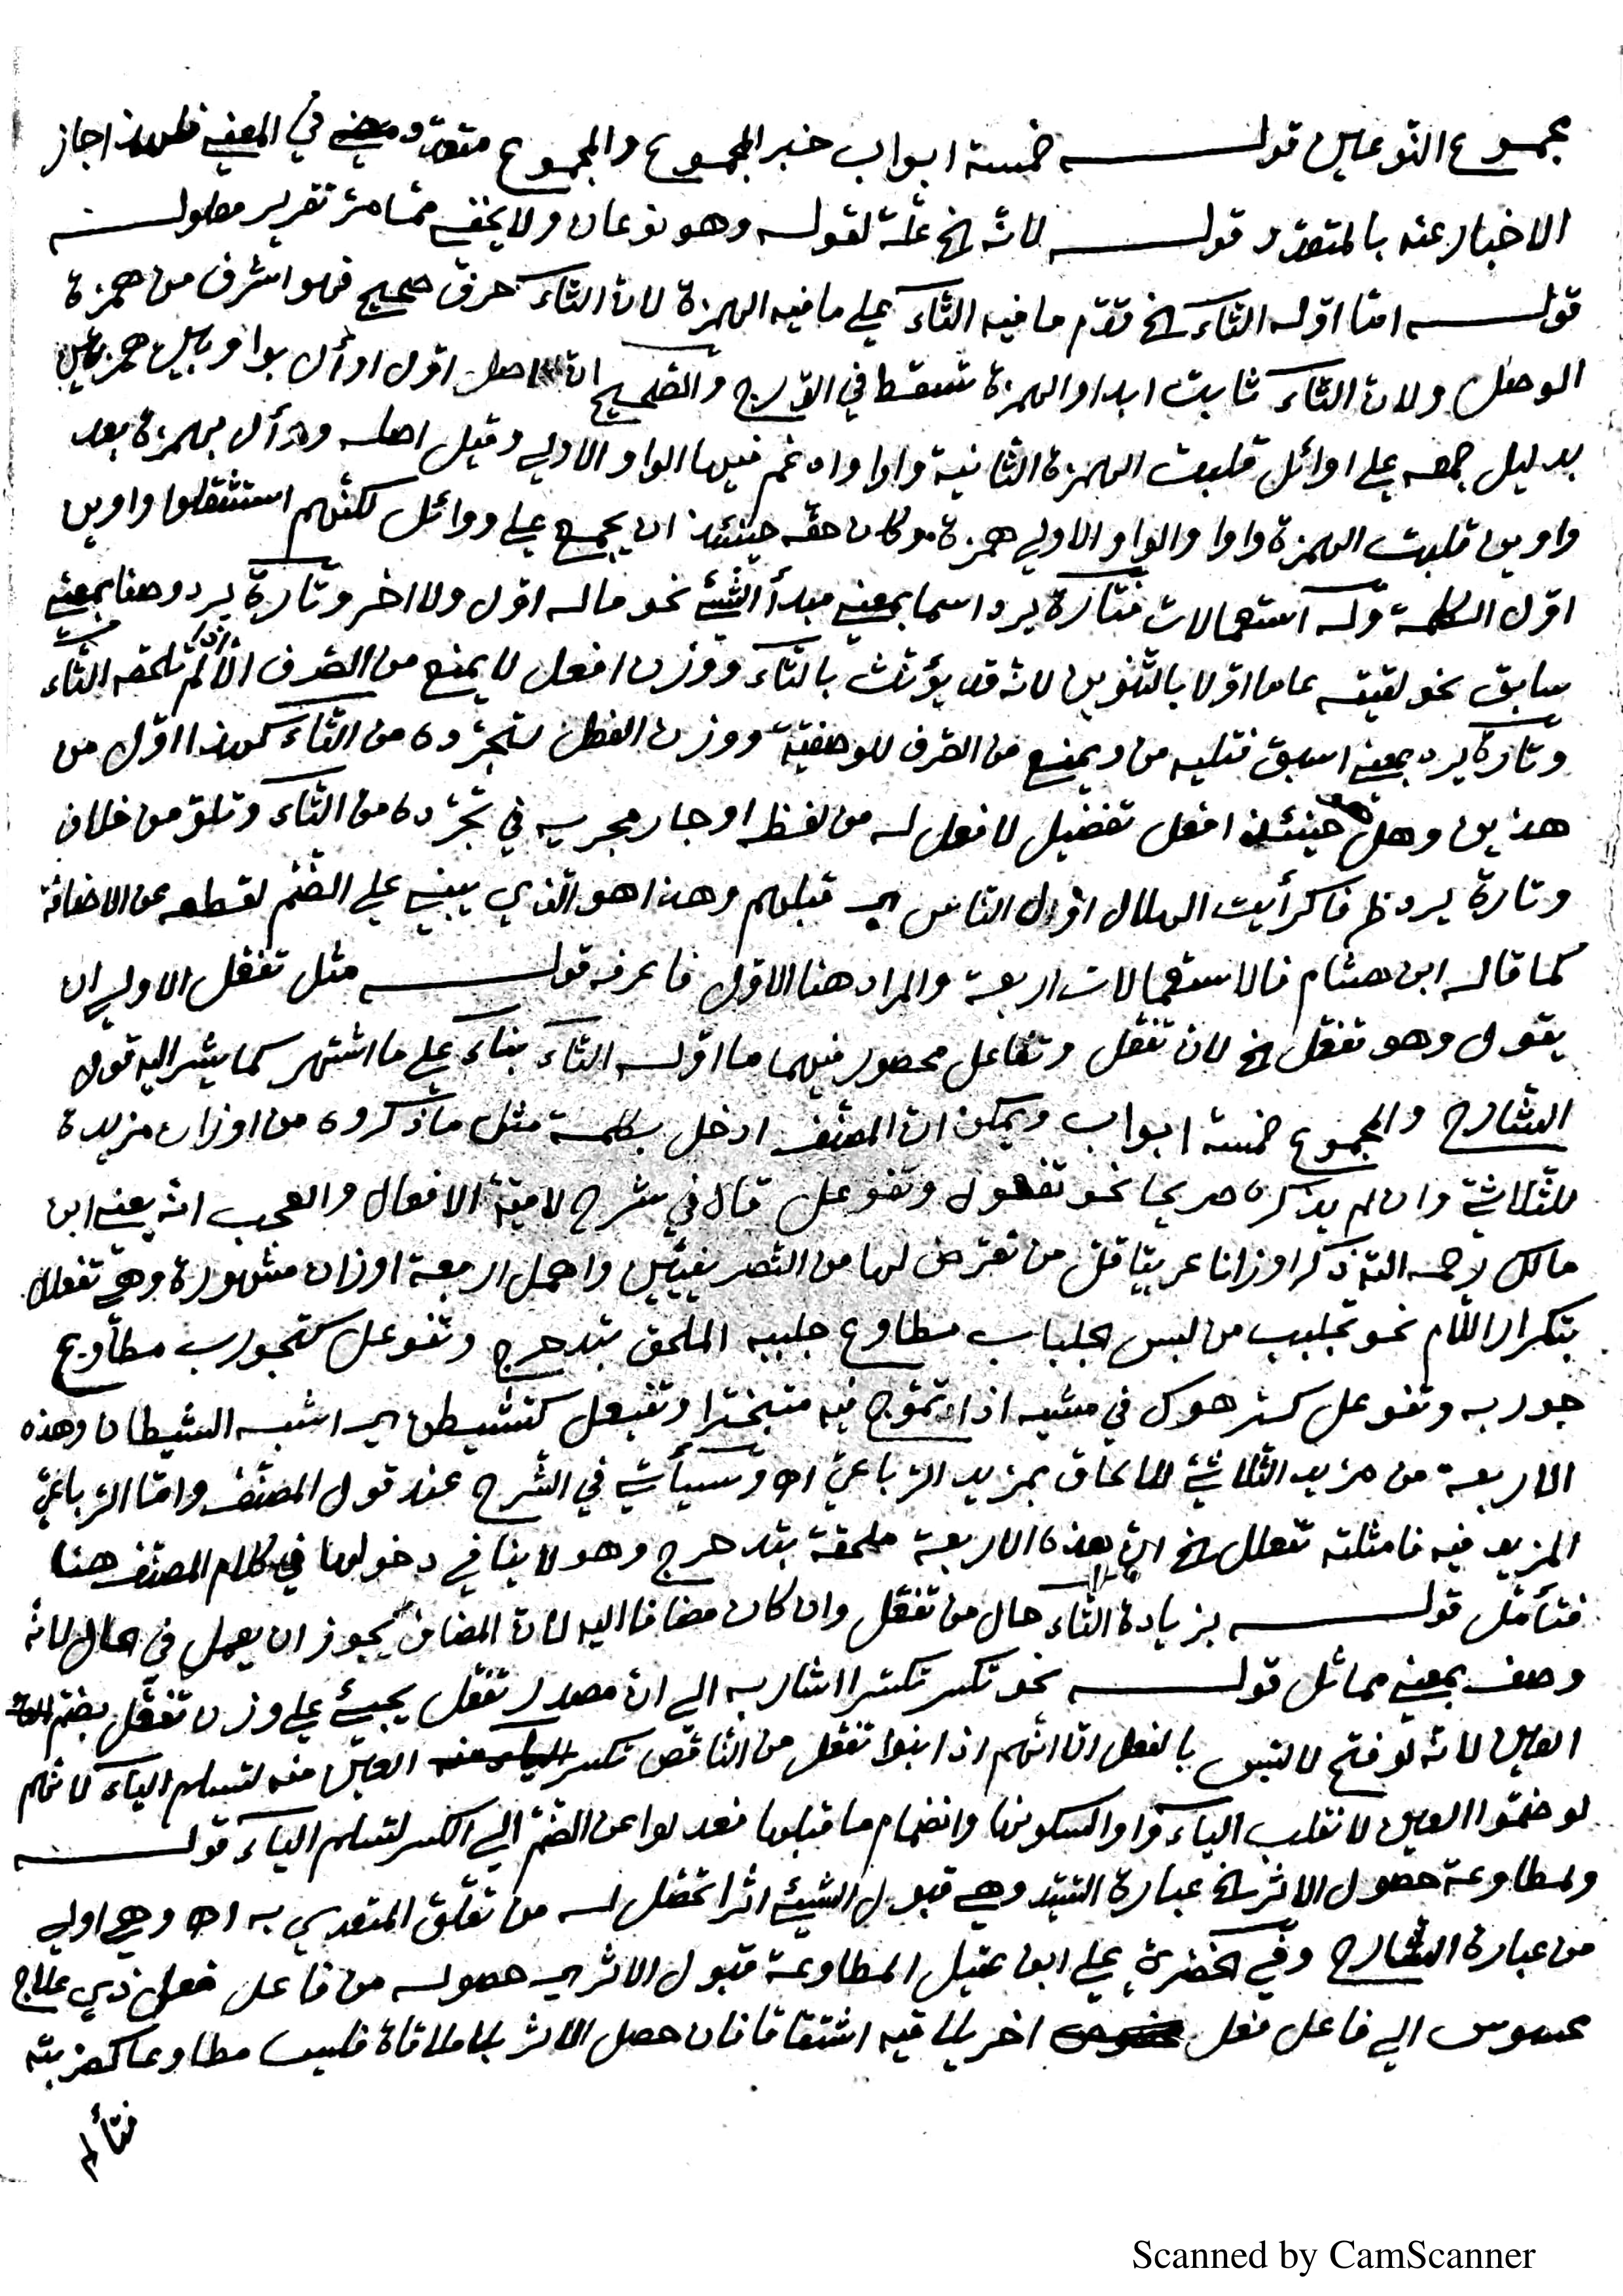 مجموع النوعين قوله خمسة ابواب خبر المجموع والمجموع متعدد في المعنى فلهذا جاز
الاخبار عنه بالمتعدد قوله لانه الخ علة لقوله وهو نوعان ولا يخفى مما مر تقرير مطوله
قوله اما اوله التاء الخ قدم ما فيه التاء على ما فيه الهمزة لان التاء حرف صحيح فهو اشرف من همزة
الوصل ولان التاء ثابت ابدا والهمزة تسقط في الدرج والصحيح ان اصل اول اوأل بواو بين همزتين
بدليل جمعه على اوائل قلبت الهمزة الثانية واوا وادغم فيها الواو الاولى وقيل اصله ووأل بهمزة بعد
واوين قلبت الهمزة واوا والواو الاولى همزة وكان حقه حينئذ ان يجمع على ووائل لكنهم استثقلوا واوين
اول الكلمة وله استعمالات فتارة يرد اسما بمعنى مبدأ الشئ نحو ماله اول ولا اخر وتارة يرد وصفا بمعنى
سابق نحو لقيته عاما اولا بالتنوين لانه قد يؤنث بالتاء ووزن افعل لا يمنع من الصرف الا اذا لم تلحقه التاء
وتارة يرد بمعنى اسبق فتليه من ويمنع من الصرف للوصفية ووزن الفعل لتجرده من التاء كهذا اول من
هذين وهل هو حينئذ افعل تفضيل لا فعل له من لفظه او جار مجريه في تجرده من التاء وتلو من خلاف
وتارة يرد ظرفا كرأيت الهلال اول الناس اي قبلهم وهذا هو الذي يبنى على الضم لقطعه عن الاضافة
كما قاله ابن هشام فالاستعمالات اربعة والمراد هنا الاول فاعرفه قوله مثل تفعل الاولى ان
يقول وهو تفعل الخ لان تفعل وتفاعل محصور فيهما ما اوله التاء بناء على ما اشتهر كما يشير اليه قول
الشارح والمجموع خمسة ابواب ويمكن ان المصنف ادخل بكلمة مثل ما ذكروه من اوزان مزيدة
للثلاثي وان لم يذكره صريحا نحو تفعول وتفوعل قال في شرح لامية الافعال والعجب انه يعنى ابن
مالك رحمه الله ذكر اوزانا غريبا قل من تعرض لها من التصريفيين واهمل اربعة اوزان مشهورة وهي تفعلل
بتكرار اللام نحو تجلبب من لبس الجلباب مطاوع جلببه الملحق بتدحرج وتفوعل كتجورب مطاوع
جوربه وتفوعل كترهوك في مشيه اذا تموج فيه متبخترا وتفيعل كتشيطن اي اشبه الشيطان وهذه
الاربعة من مزيد الثلاثي للالحاق بمزيد الرباعي اه وسيأتي في الشرح عند قول المصنف واما الرباعي
المزيد فيه فامثلته تفعلل الخ ان هذه الاربعة ملحقة بتدحرج وهو لا ينافي دخولها في كلام المصنف هنا
فتأمل قوله بزيادة التاء حال من تفعل وان كان مضافا اليه لان المضاف يجوز ان يعمل في الحال لانه
وصف بمعنى مماثل قوله نحو تكسر تكسرا اشار به الى ان مصدر تفعل يجيئ على وزن تفعل بضم
العين لانه لو فتح لالتبس بالفعل الا انهم اذا بنوا تفعل من الناقص تكسر العين منه لتسلم الياء لانهم
لو ضموا العين لانقلب الياء واوا لسكونها وانضمام ما قبلها فعدلوا عن الضم الى الكسر لتسلم الياء قوله
ولمطاوعة حصول الاثر الخ عبارة السيد وهي قبول الشيئ اثرا تحصل له من تعلق المتعدي به اه وهي اولى
من عبارة الشارح وفي الخضري على ابن عقيل المطاوعة قبول الاثر اي حصوله من فاعل فعل ذي علاج
محسوس الى فاعل فعل اخر يلاقيه اشتقاقا فان حصل الاثر بلا ملاقاة فليس مطاوعا كضربته
فتألم
Scanned by CamScanner